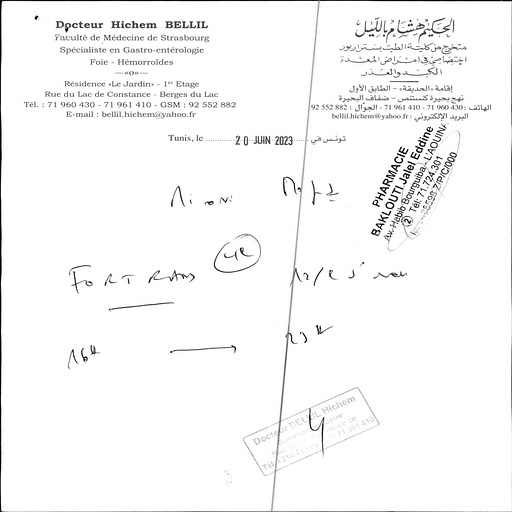 Docteur Hichem BELLIL
Faculté de Médecine de Strasbourg
Spécialiste en Gastro-entérologie
Foie - Hémorroïdes
—«o»—
Résidence «Le Jardin» - 1er Etage
Rue du Lac de Constance - Berges du Lac
Tél. : 71 960 430 - 71 961 410 - GSM : 92 552 882
E-mail : bellil.hichem@yahoo.fr
الحكيم هشام بالليل
متخرج من كلية الطب بسترازبور
إختصاصي في امراض المعدة
الكبد والعذر
إقامة «الحديقة» - الطابق الأول
نهج بحيرة كنستنس - ضفاف البحيرة
الهاتف : 430 960 71 - 410 961 71 - الجوال : 882 552 92
البريد الإلكتروني : bellil.hichem@yahoo.fr
Tunis, le 20 JUIN 2023 تونس في
PHARMACIE
BAKLOUTI Jalel Eddine
Av. Habib Bourguiba - L'AOUINA
Tél: 71.724.301
FORTRANS 4L
16H → 23H
Docteur BELLIL Hichem